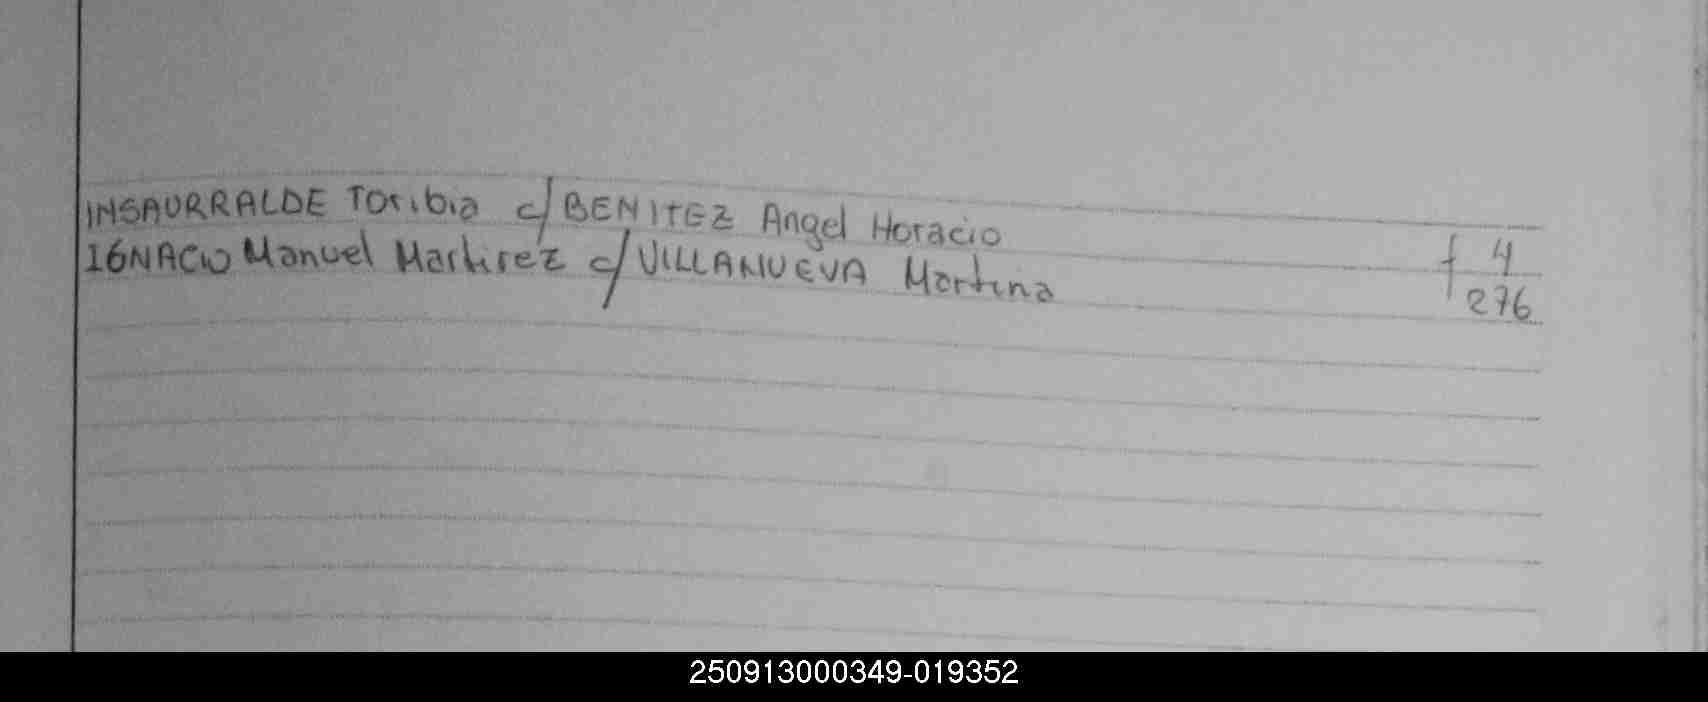 INSAURRALDE Toribia c/ BENITEZ Angel Horacio f 4
IGNACIO Manuel Martirez c/ VILLANUEVA Martina 276
250913000349-019352